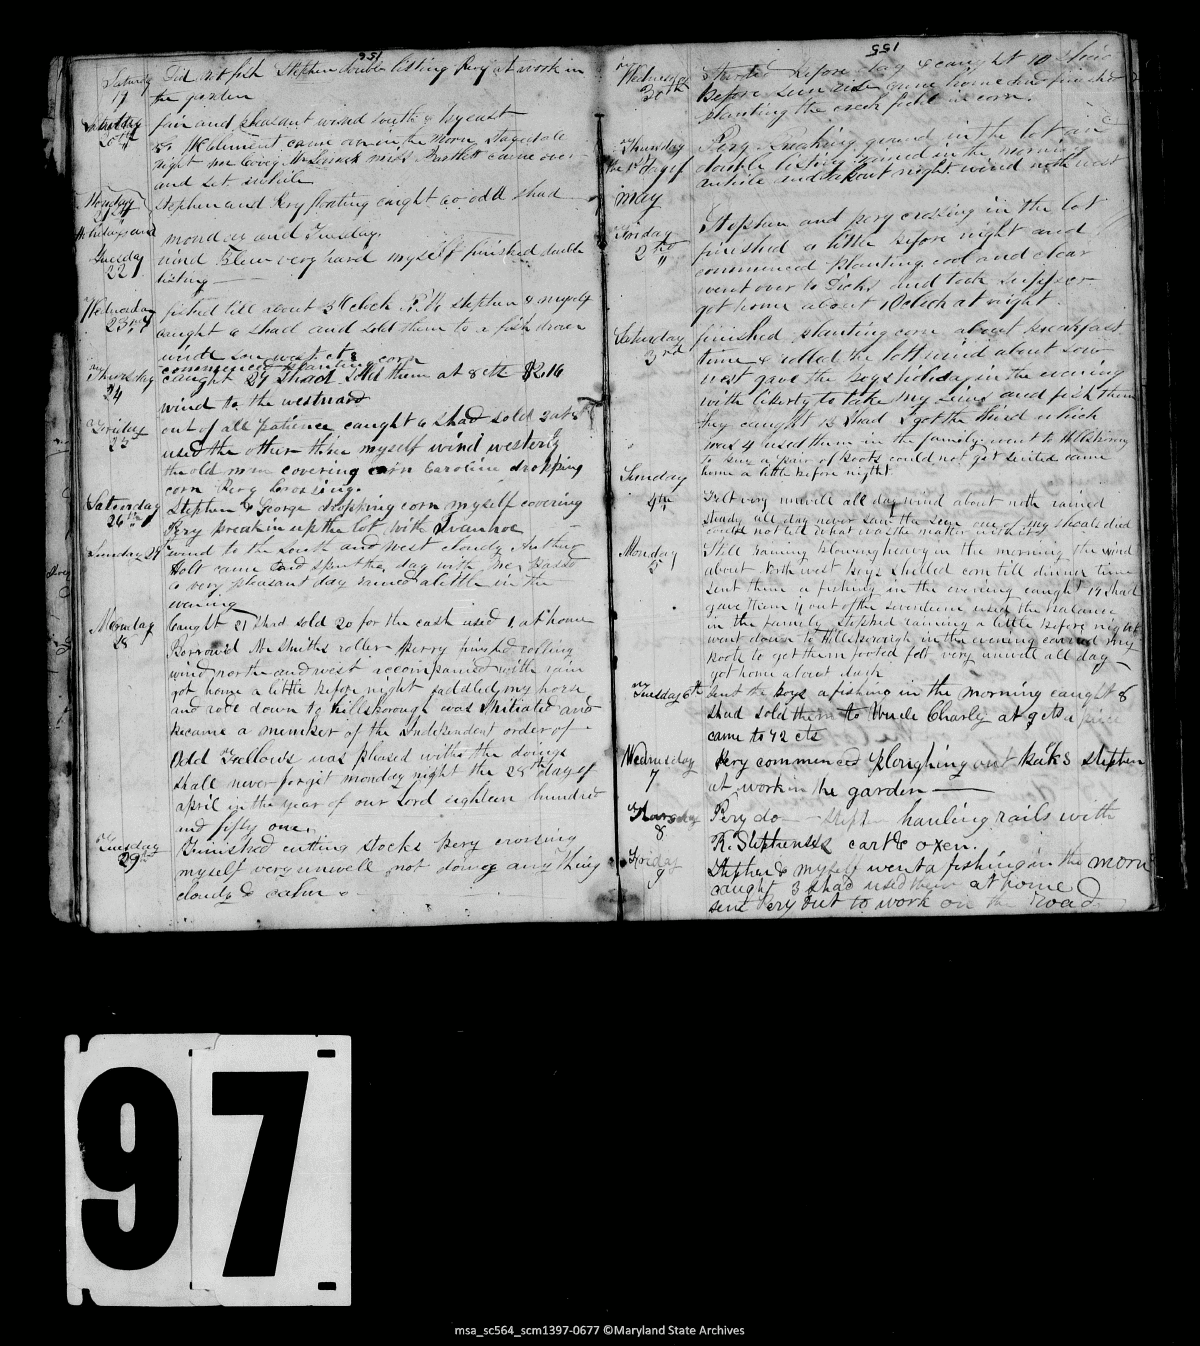 156
Saturday Did not fish Stephen double listing Pery at work in
19 the garden
Saturday fair and pleasant wind south & by east
20th came over in the morn Stayed all
night Miss Bartlett came over
and set awhile
Monday Stephen and Pery floating caught 20 odd shad
21st
Holidays and monday and Tuesday.
Tuesday wind Blew very hard myself finished double
22 listing
Wednesday fished till about 3 Oclock P.M. stephen & myself
23rd caught 6 shad and sold them to a fish drover
wind sou west
commenced planting corn
Thursday caught 27 Shad Sold them at 8 cts $2.16
24 wind to the westward
Friday out of all patience caught 6 shad sold 3 at 5
25 used the other three myself wind westerly
the old man covering corn Caroline dropping
corn Pery Crossing.
Saturday Stephen & George dropping corn myself covering
26th Pery breakin up the lot with Ivanhoe
Sunday 27 wind to the south and west cloudy
Holt came and spent the day with me. passd
a very pleasant day rained a little in the
evening
Monday Caught 21 Shad sold 20 for the cash used 1 at home
28 Borrowed Mr Smiths roller Perry finishd rolling
wind north and west accompanied with rain
got home a little before night saddled my horse
and rode down to hillsborough was Initiated and
became a member of the Independent order of
Odd Fellows was pleased with the doings
shall never forget monday night the 28th day of
april in the year of our Lord eighteen hundred
and fifty one.
Tuesday Finished cutting stocks Pery crossing
29th myself very unwell not doing any thing
cloudy & calm
155
Wednesday Started before day & caught 10 Shad
30th before sun rise came home and finished
planting the creek field in corn.
Thursday Pery breaking ground in the lot and
the 1st day of double listing rained in the morning
May awhile and about night wind north west
Friday Stephen and pery crossing in the lot
2nd finished a little before night and
commenced planting cool and clear
went over to Dicks and took supper
got home about Oclock at night
Saturday finished planting corn about breakfast
3rd time & rolled the lott wind about sou
west gave the boys holiday in the evening
with liberty to take my Seine and fish them
they caught 13 Shad I got the third which
was 4 used them in the family went to Hillsboroug
to buy a pair of boots could not get suited came
home a little before night
Sunday Felt very unwell all day wind about noth rained
4th steady all day never saw the sun one of my shoats died
could not tell what was the matter with it
Monday Still raining blowing heavy in the morning the wind
5 about North west boys shelled corn till dinner time
Sent them a fishing in the evening caught 17 shad
gave them 4 out of the seventeen used the balance
in the family Stopted raining a little before night
went down to Hillsboroug in the evening carried my
boots to get them footed felt very unwell all day
got home about dusk
Tuesday 6th Sent the boys a fishing in the morning caught 8
shad sold them to Uncle Charly at 9 cts a piece
came to 72 cts
Wednesday Pery commenced ploughing out stephen
7 at work in the garden
Thursday Pery do stephen hauling rails with
8 R. Stephensss cart & oxen.
Friday Stephen & myself went a fishing in the morn
9 caught 3 shad used them at home
sent Pery out to work on the road
97
msa_sc564_scm1397-0677 ©Maryland State Archives